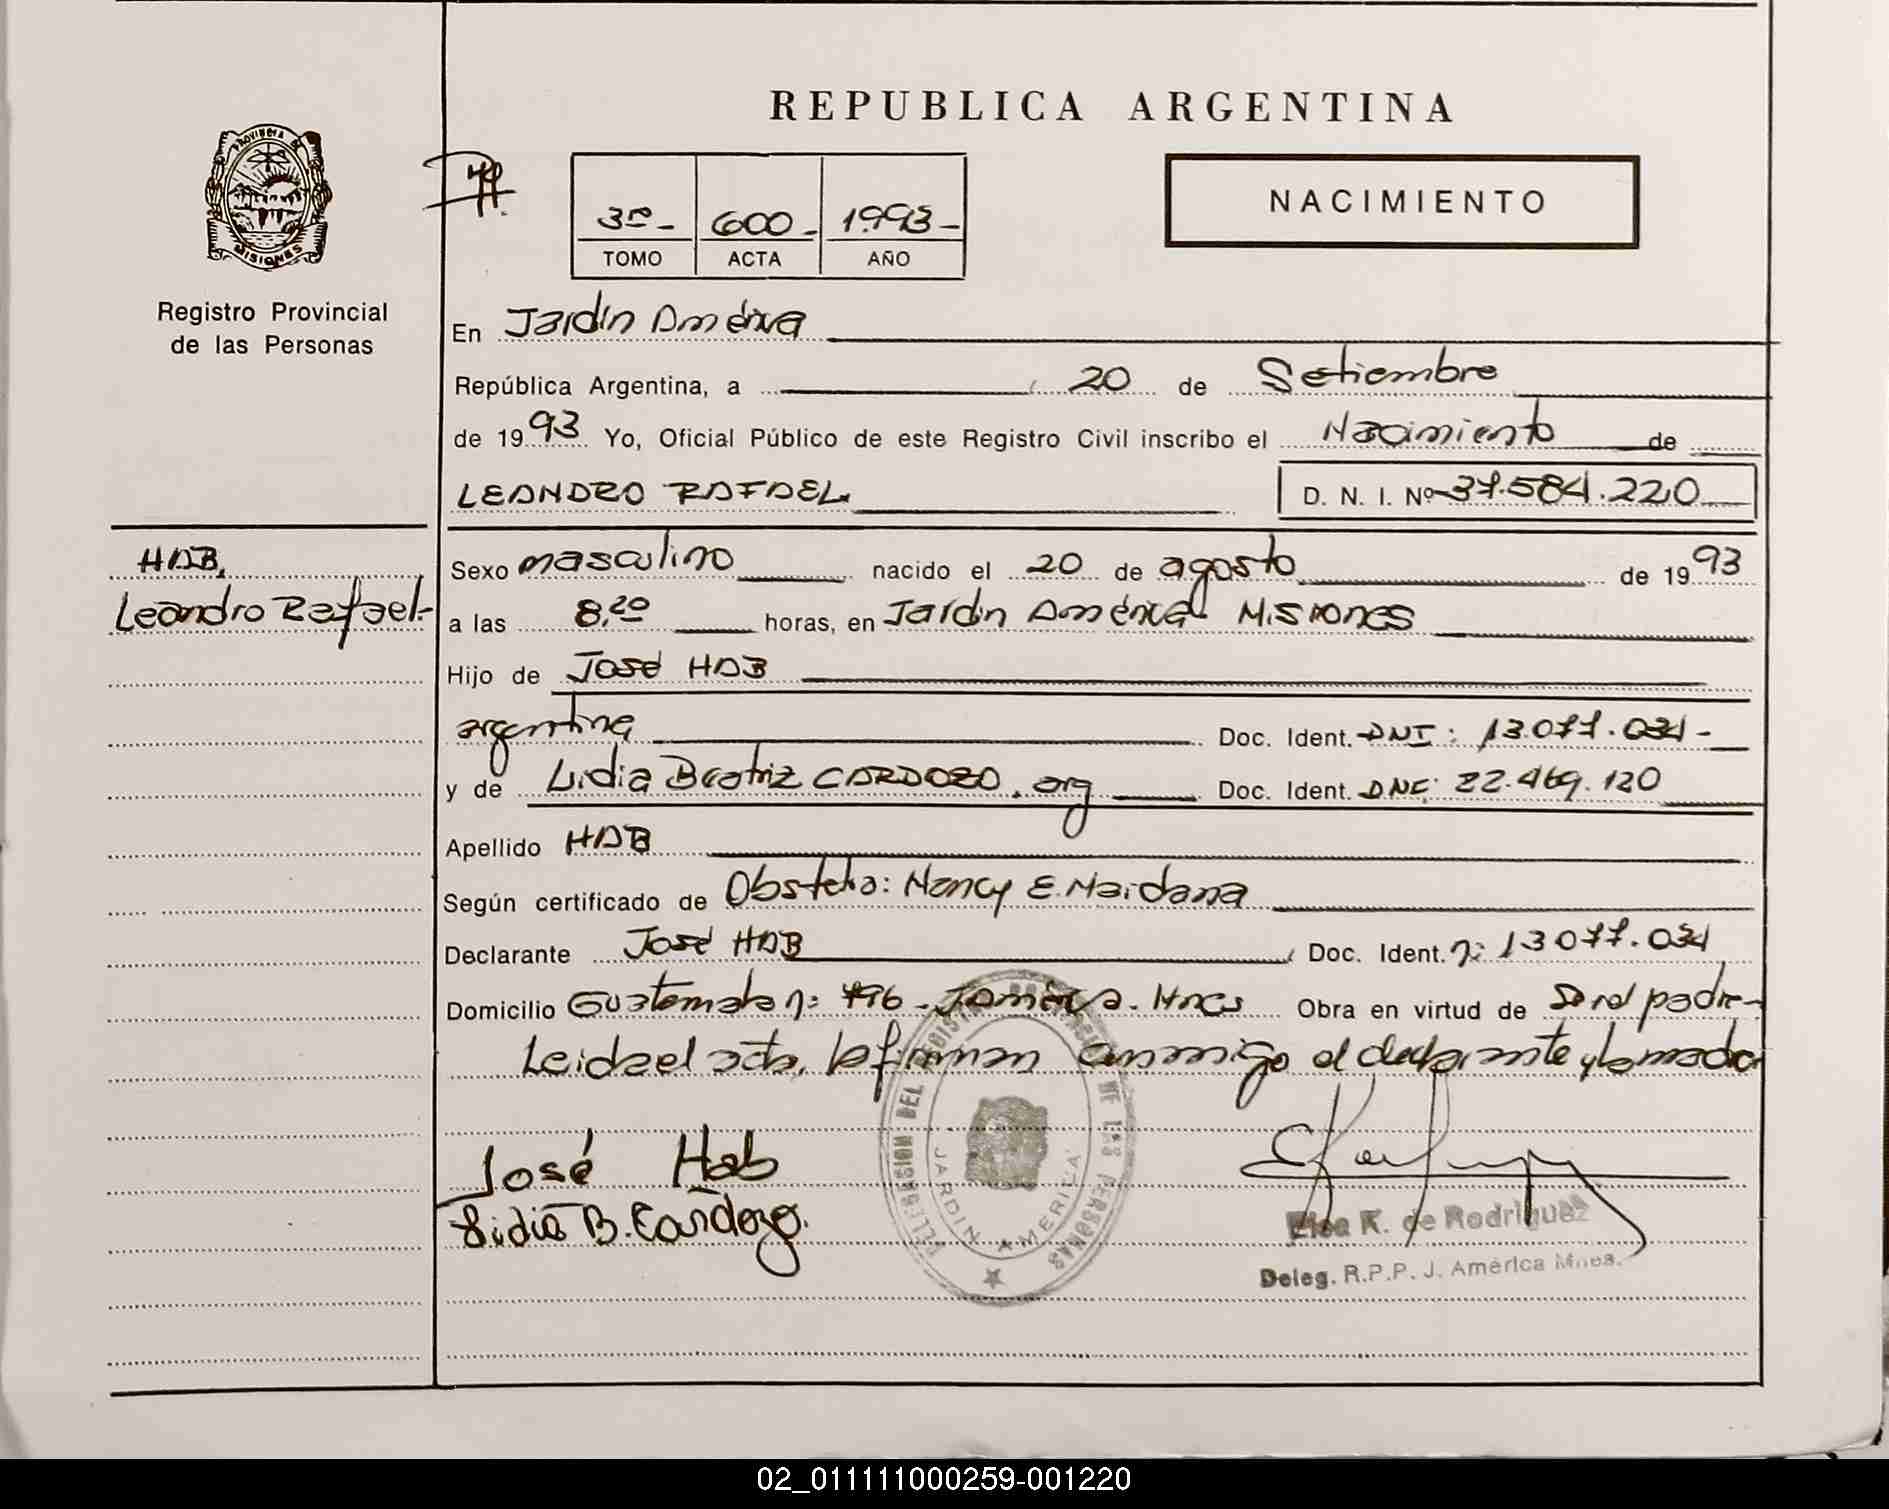 REPUBLICA ARGENTINA
PROVINCIA DE MISIONES
Registro Provincial
de las Personas
3º - 600 - 1993 -
TOMO ACTA AÑO
NACIMIENTO
En Jardín América
República Argentina, a 20 de Setiembre
de 1993 Yo, Oficial Público de este Registro Civil inscribo el Nacimiento de
LEANDRO RAFAEL D. N. I. Nº 37.584.220
HAB,
Leandro Rafael-
Sexo masculino nacido el 20 de agosto de 1993
a las 8,20 horas, en Jardín América Misiones
Hijo de José HAB
argentina Doc. Ident. DNI: 13.077.034-
y de Lidia Beatriz CARDOZO. arg Doc. Ident. DNI: 22.469.120
Apellido HAB
Según certificado de Obstetra: Nancy E. Maidana
Declarante José HAB Doc. Ident. n: 13077.034
Domicilio Guatemala n: 496 - J. América. Mnes Obra en virtud de Ser el padre-
Leida el acta, la firman conmigo el declarante y la madre
José Hab
Lidia B. Cardozo.
DELEGACION DEL REGISTRO PROVINCIAL DE LAS PERSONAS
JARDIN AMERICA
Elsa R. de Rodriguez
Deleg. R.P.P. J. América Mnes.
02_011111000259-001220